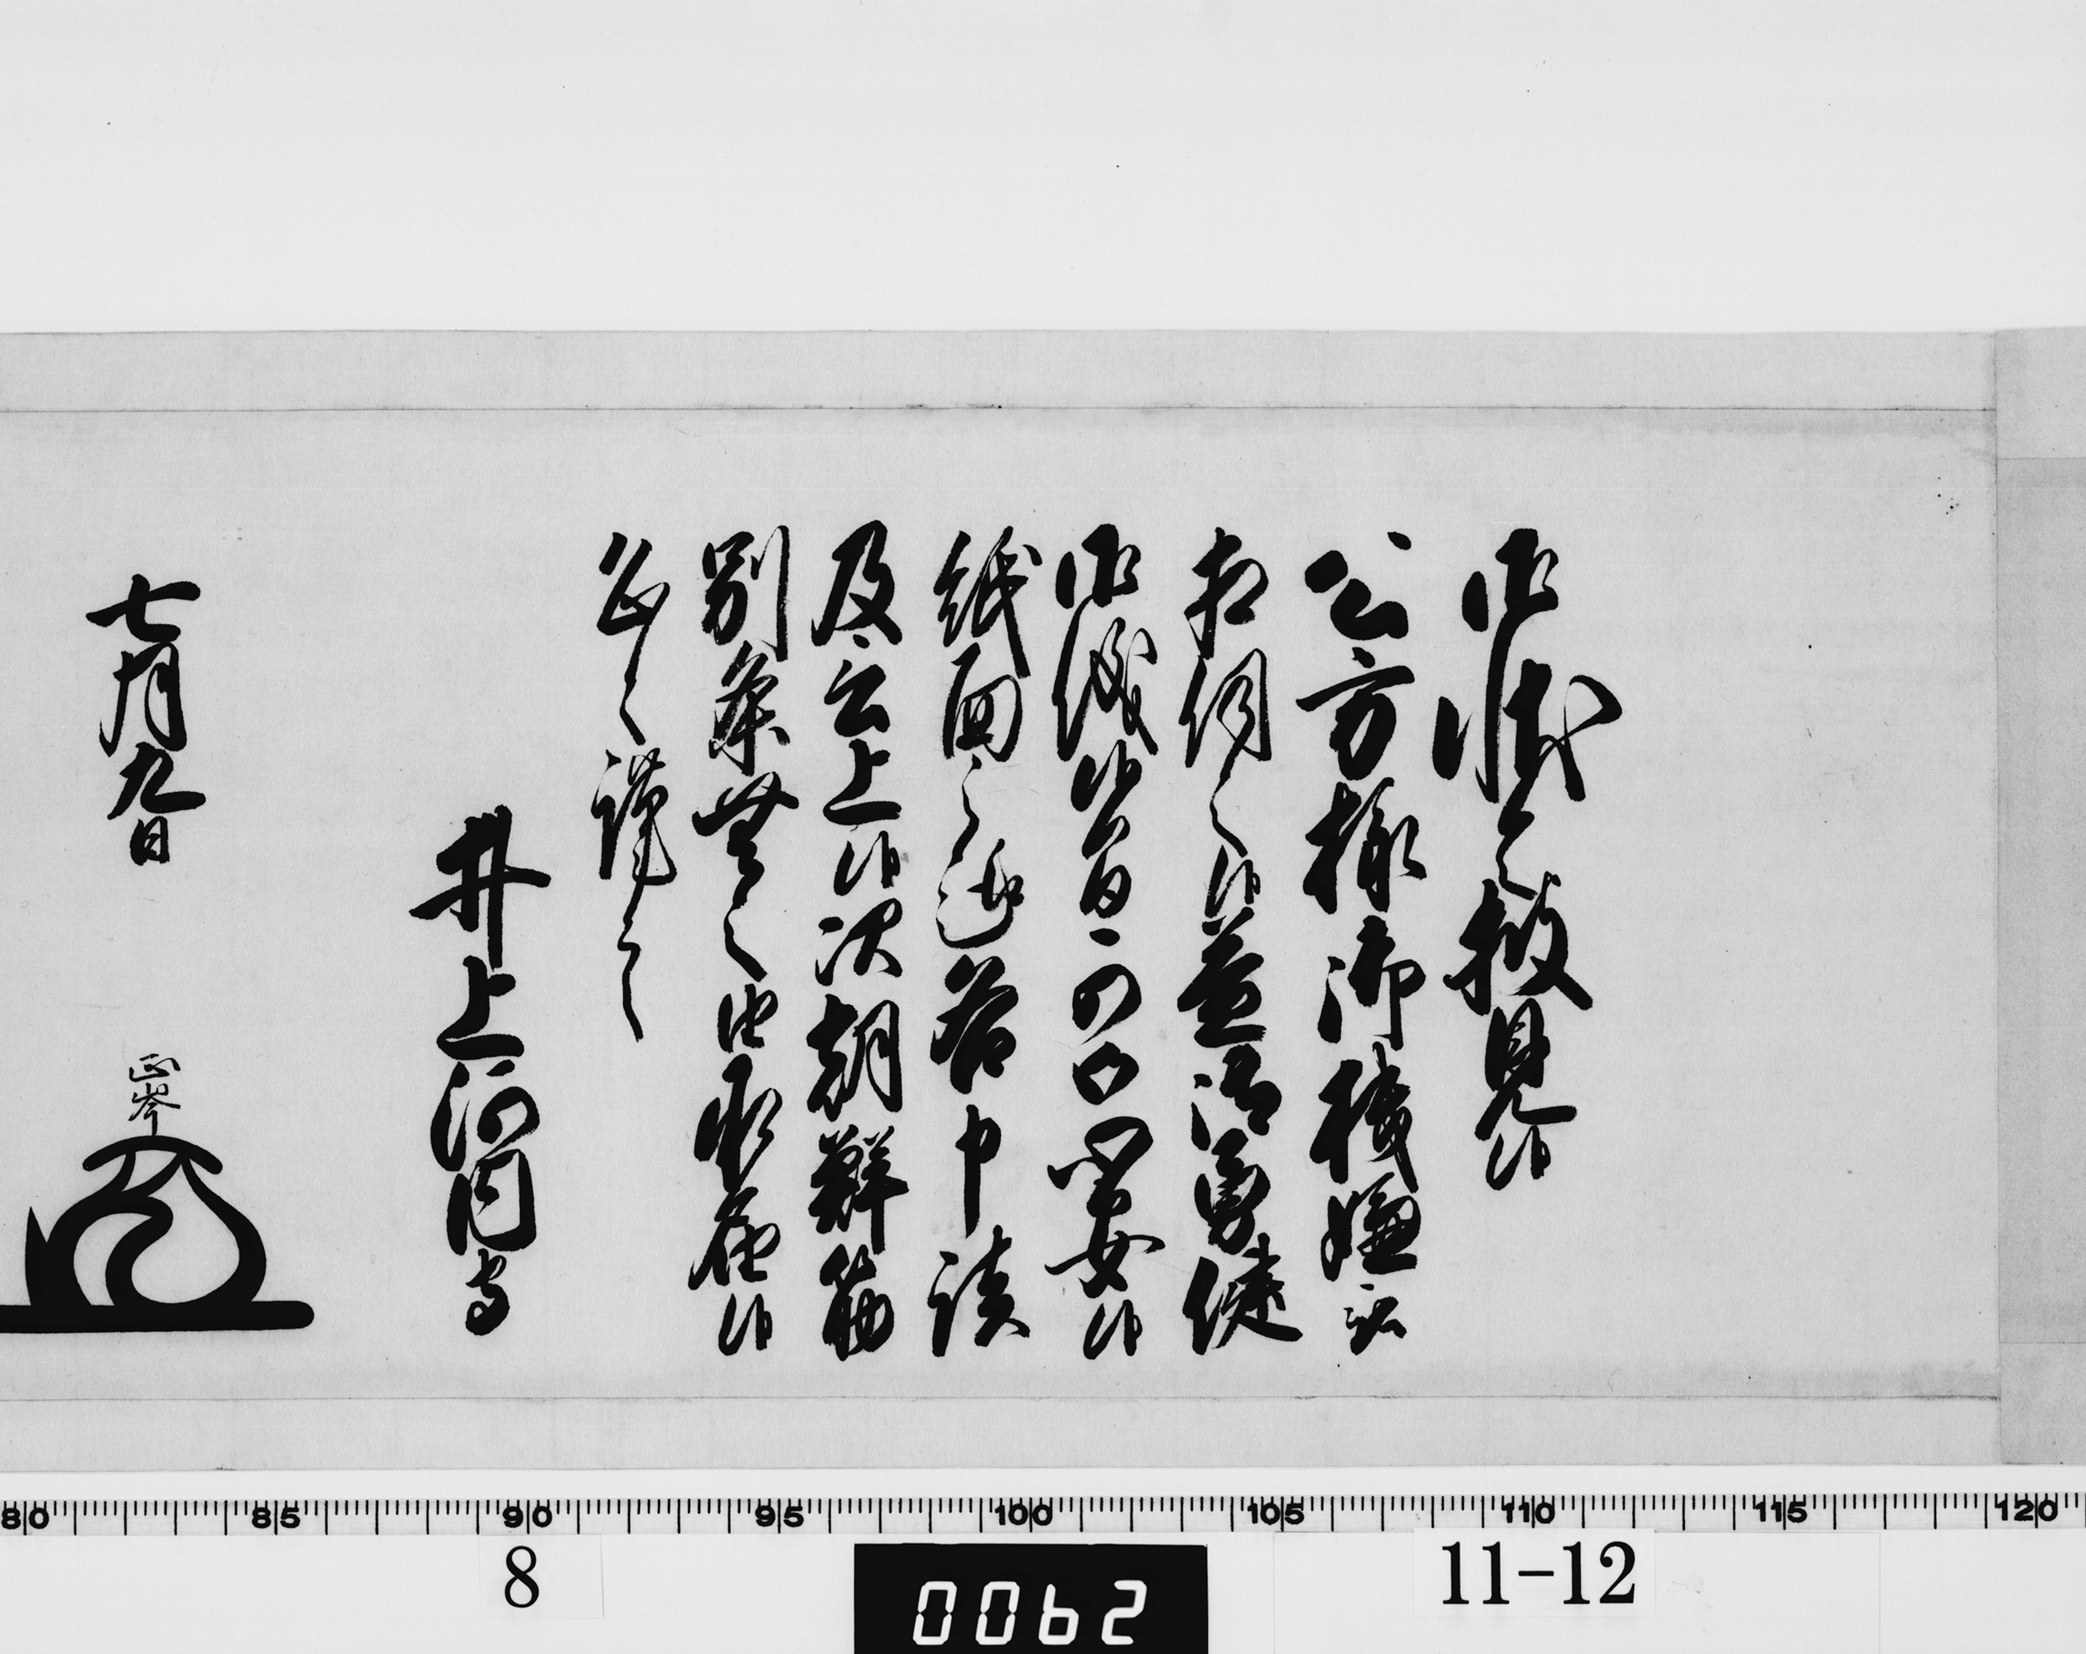 御状令披見候
公方様御機嫌被
相伺之候益御勇健
御儀候間可心安候
紙面之趣若申談
及言上候次朝鮮筋
別条無之由承届候
恐々謹言
井上河内守
七月九日
正岑
80 85 90 95 100 105 110 115 120
8
0062
11-12